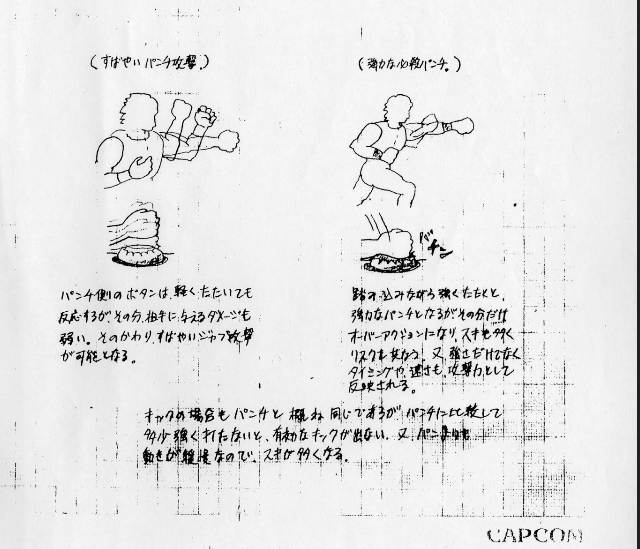 (すばやいパンチ攻撃。)
パンチ側のボタンは、軽くたたいても
反応するがその分、相手に与えるダメージも
弱い。そのかわり、すばやいジャブ攻撃
が可能となる。
(強力な必殺パンチ。)
バチーン
踏み込みながら強くたたくと、
強力なパンチとなるがその分だけ
オーバーアクションになり、スキも多く
リスクを女なう。又、強さだけでなく
タイミングや、速さも、攻撃力として
反映される。
キックの場合もパンチと概ね同じであるがパンチに比較して
多少強く打たないと、有効なキックが出ない。又、パンチよりも
動きが緩慢なので、スキが多くなる。
CAPCOM